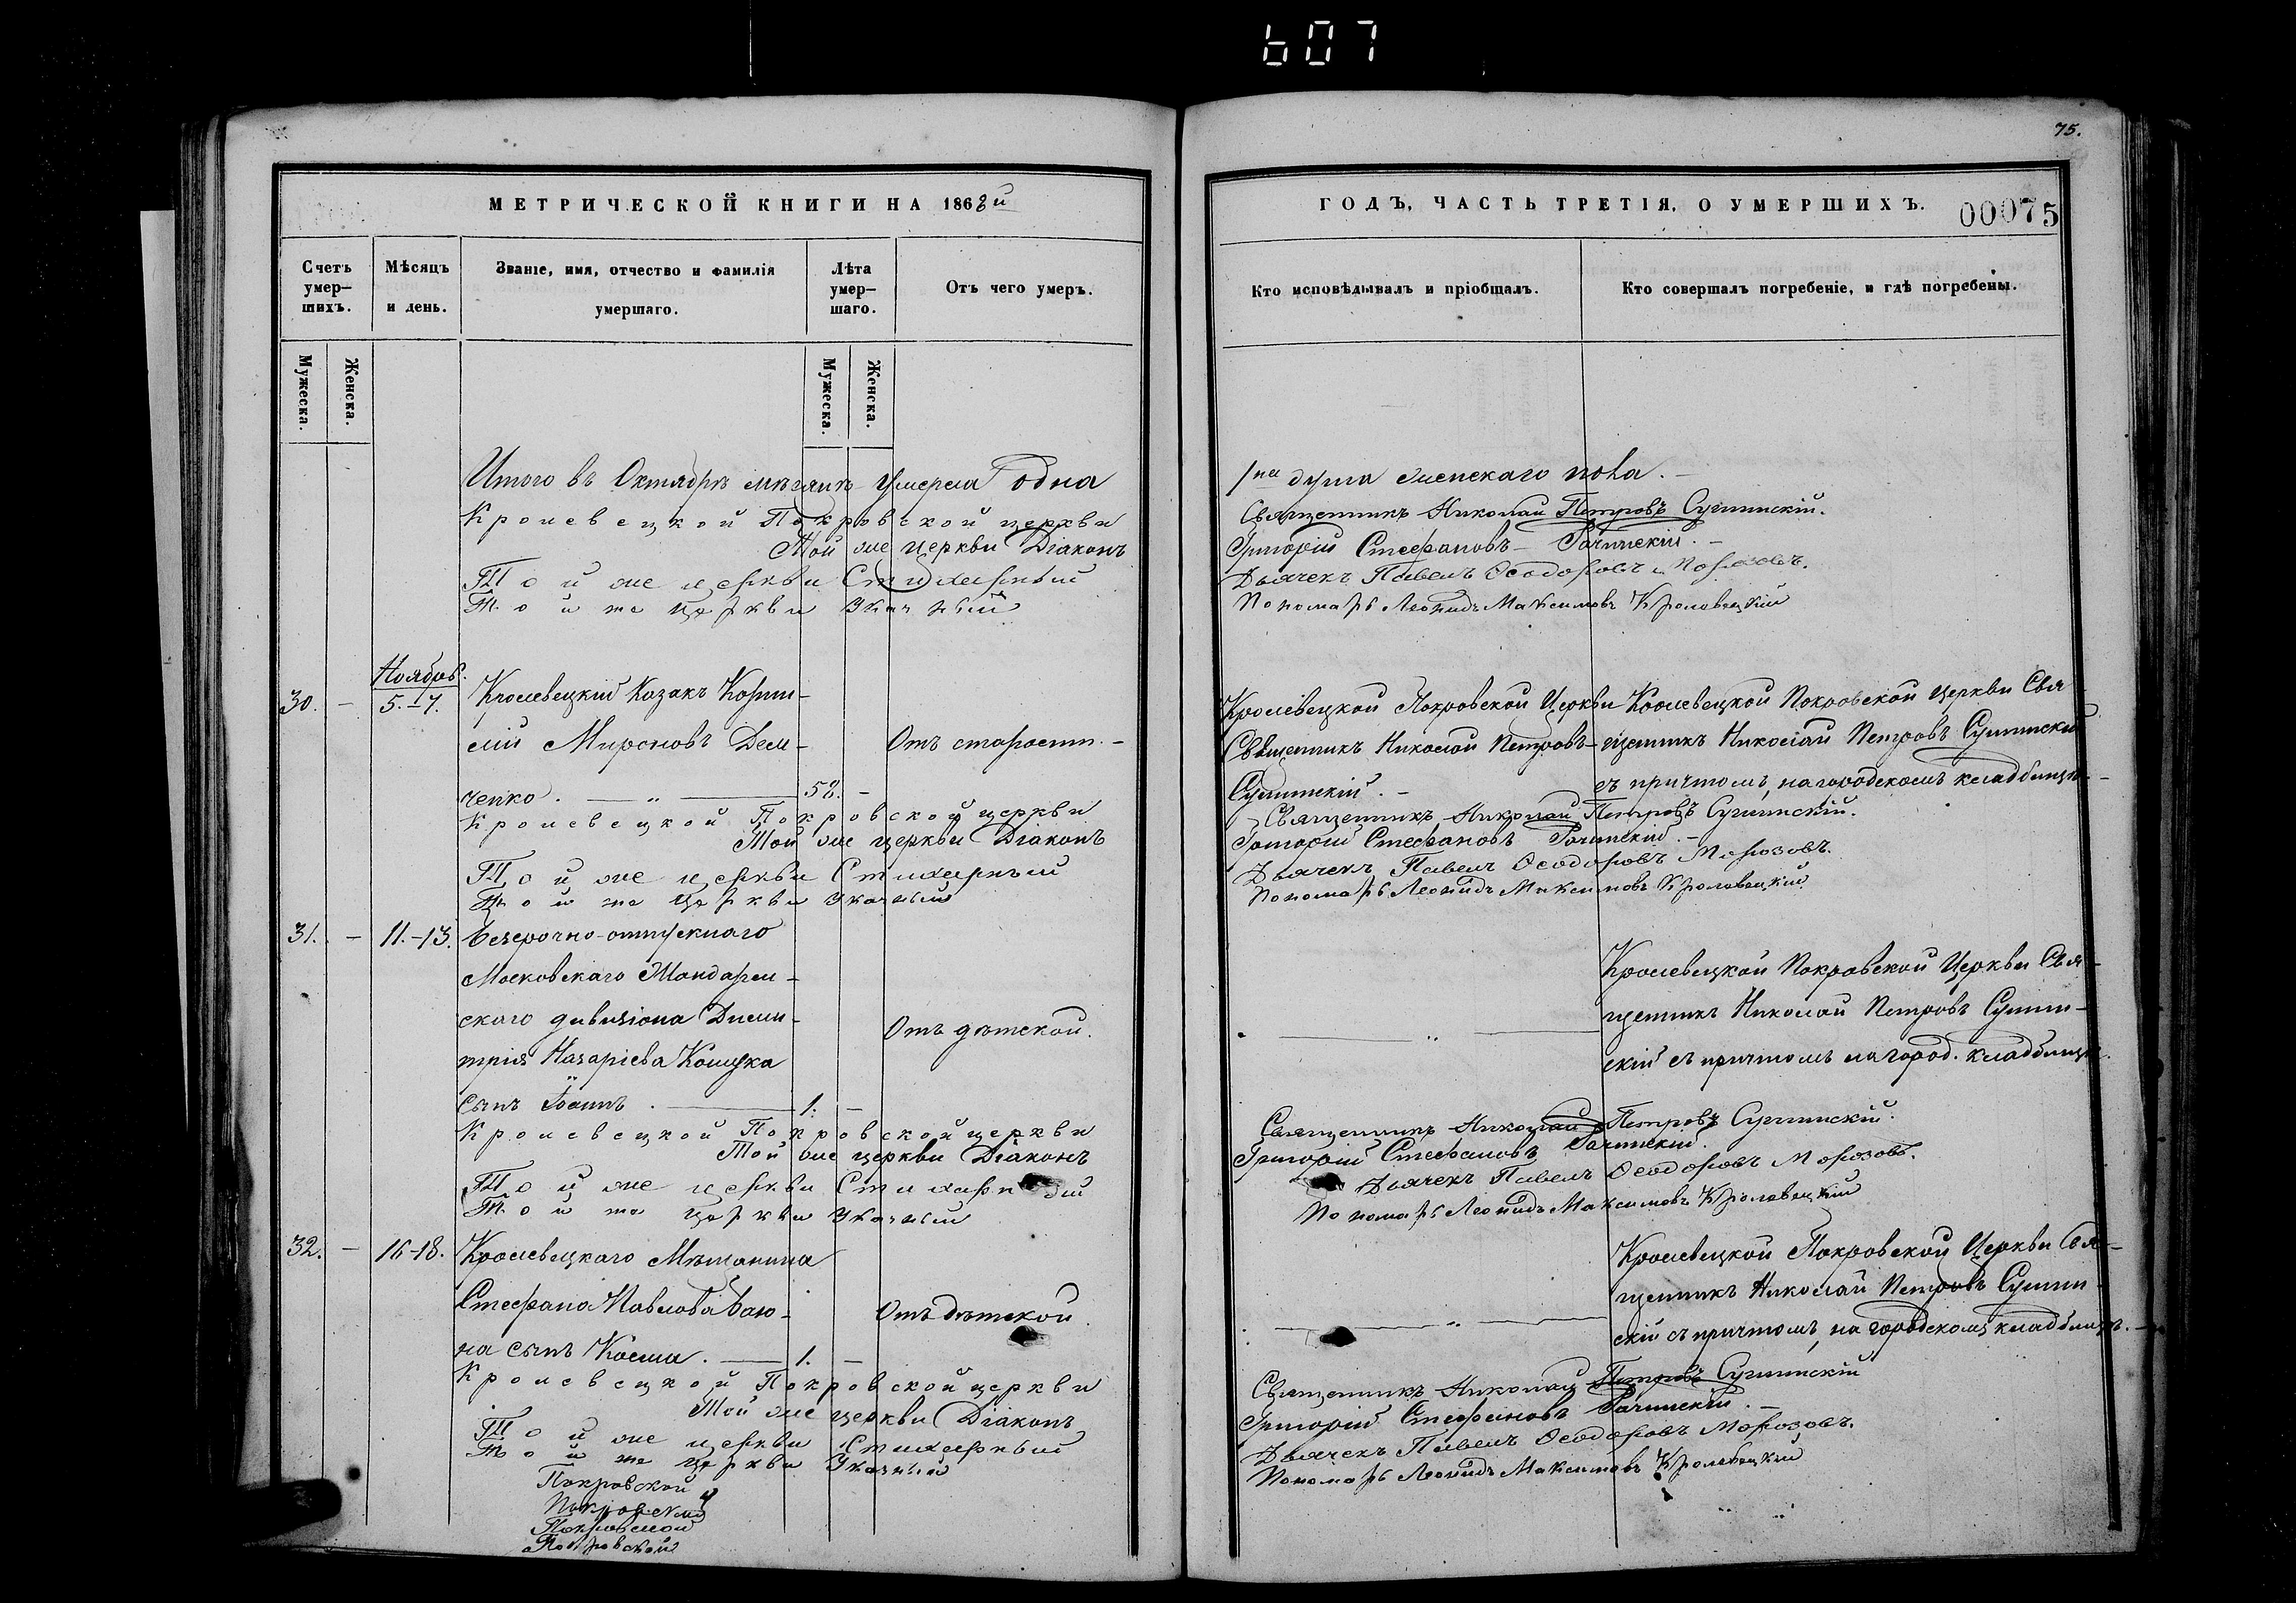 607
75.
МЕТРИЧЕСКОЙ КНИГИ НА 1868й
ГОДЪ, ЧАСТЬ ТРЕТІЯ, О УМЕРШИХЪ.
00075
Счетъ умер–шихъ.
Мѣсяцъ и день.
Званіе, имя, отчество и фамилія умершаго.
Лѣта умер–шаго.
Отъ чего умеръ.
Кто исповѣдывалъ и пріобщалъ.
Кто совершалъ погребеніе, и гдѣ погребены.
Мужеска.
Женска.
Мужеска.
Женска.
Итого въ Октябрѣ мѣсяцѣ умерла одна
1на душа женскаго пола.
Кролевецкой Покровской церкви
Священникъ Николай Петровъ
Той же церкви Діаконъ
Григорій Стефановъ
Той же церкви Стихарный
Дьячекъ Павелъ Ѳеодоровъ Морозовъ.
Той же церкви Указный
Пономарь Леонидъ Максимовъ Кролевецкій
Ноябрь.
30. – 5.–7.
Кролевецкій Козакъ
Мироновъ Дем–
ченко. 58. –
Отъ старости. –
Кролевецкой Покровской Церкви
Священникъ Николай Петровъ
Кролевецкой Покровской Церкви Свя–
щенникъ Николай Петровъ
съ причтомъ, на городскомъ кладбищѣ. –
Кролевецкой Покровской церкви
Священникъ Николай Петровъ
Той же церкви Діаконъ
Григорій Стефановъ
Той же церкви Стихарный
Дьячекъ Павелъ Ѳеодоровъ Морозовъ.
Той же церкви Указный
Пономарь Леонидъ Максимовъ Кролевецкій
31. – 11.–13.
безсрочно-отпускнаго
Московскаго Жандарм–
скаго дивизіона Дими–
трія Назаріева
сынъ Іоаннъ. 1. –
Отъ дѣтской.
Кролевецкой Покровской Церкви Свя–
щенникъ Николай Петровъ
скій съ причтомъ на город. кладбищѣ.
Кролевецкой Покровской церкви
Священникъ Николай Петровъ
Той же церкви Діаконъ
Григорій Стефановъ
Той же церкви Стихарный
Дьячекъ Павелъ Ѳеодоровъ Морозовъ.
Той же церкви Указный
Пономарь Леонидъ Максимовъ Кролевецкій
32. – 16–18.
Кролевецкаго Мѣщанина
Стефана Павлова
на сынъ Косма. 1. –
Отъ дѣтской.
Кролевецкой Покровской Церкви Свя–
щенникъ Николай Петровъ
скій съ причтомъ, на городскомъ кладбищѣ. –
Кролевецкой Покровской церкви
Священникъ Николай Петровъ
Той же церкви Діаконъ
Григорій Стефановъ
Той же церкви Стихарный
Дьячекъ Павелъ Ѳеодоровъ Морозовъ.
Той же церкви Указный
Пономарь Леонидъ Максимовъ Кролевецкій
Покровской
Покровской
Покровской
Покровской